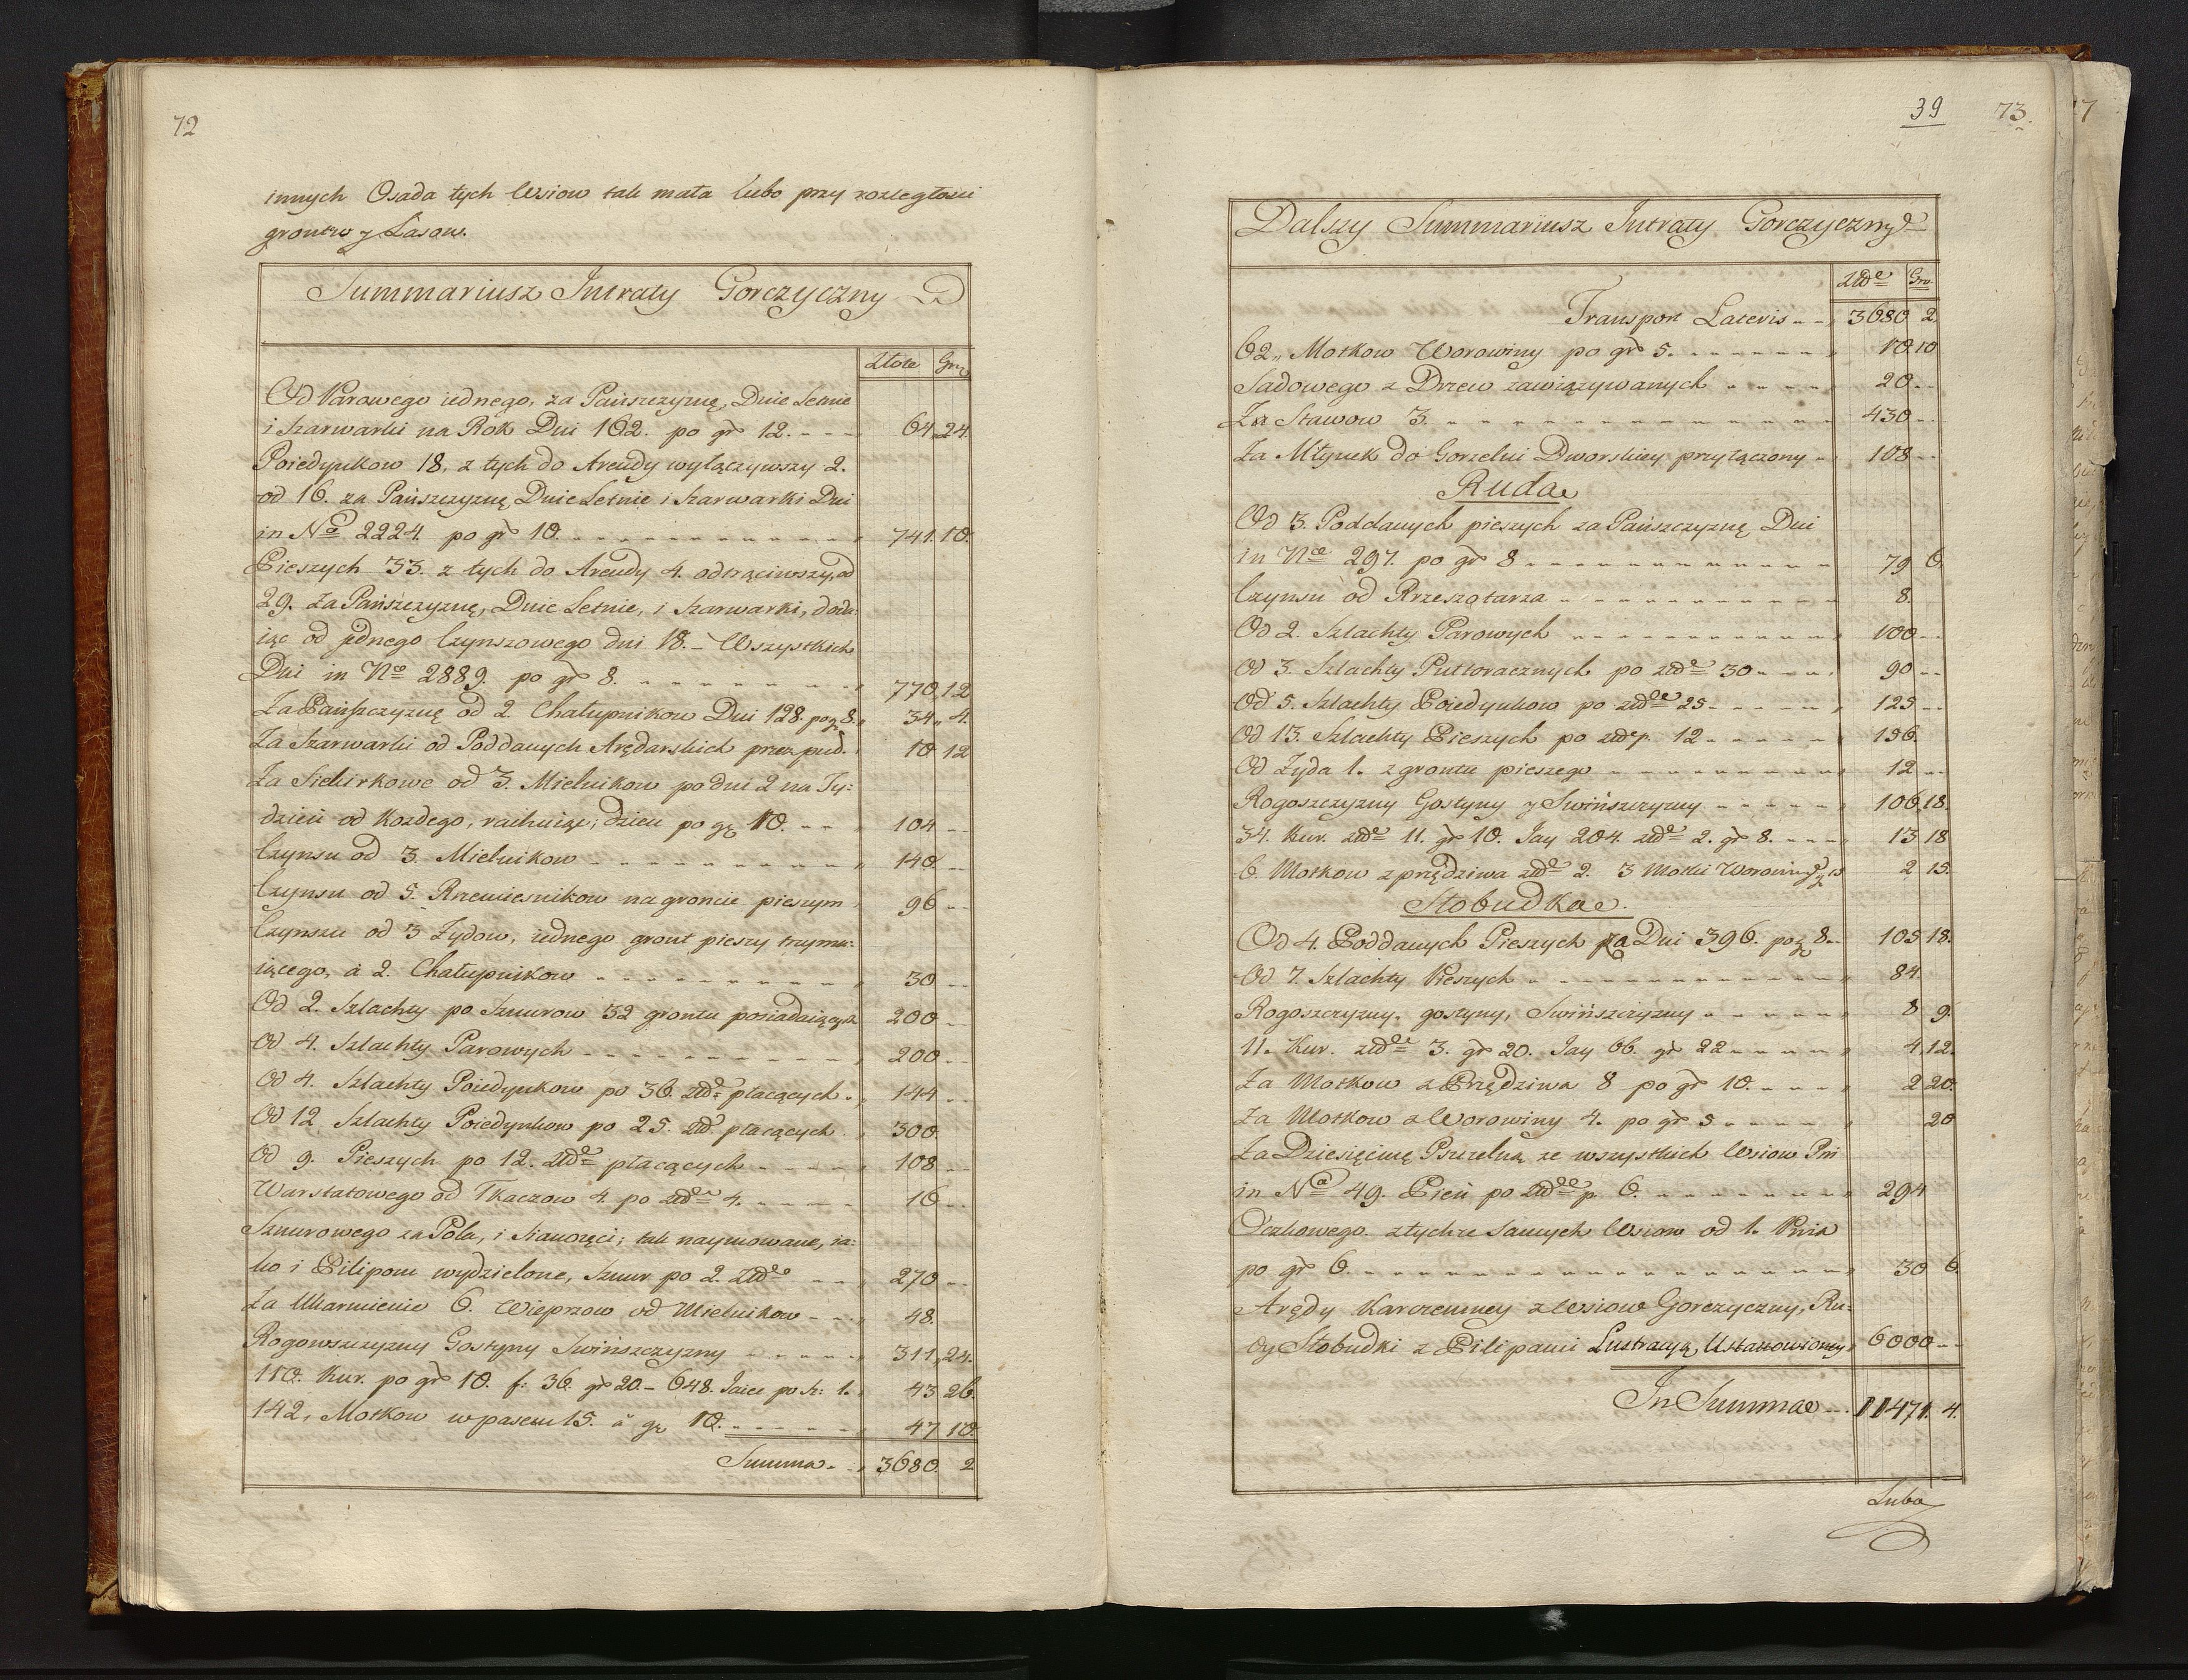 72
innych Osada tych Wsiow tak mała lubo przy rozległosci
grontow y Lasow.
Summariusz Intraty Gorczyczny
Złote Gro
Od Parowego iednego, za Pańszczyznę, Dnie Letnie
i Szarwarki na Rok Dni 162. po gr 12. 64. 24.
Poiedynkow 18, z tych do Arendy wyłączywszy 2.
od 16. za Pańszczyznę Dnie Letnie i Szarwarki Dni
in No 2224. po gr 10. 741. 10.
Pieszych 33. z tych do Arendy 4. odtrąciwszy, od
29. za Pańszczyznę, Dnie Letnie, i Szarwarki, doda:
iąc od jednego Czynszowego dni 18. – Wszystkich
Dni in No 2889. po gr 8. 770. 12
Za Pańszczyznę od 2. Chałupnikow Dni 128. po g 8. 34. 4.
Za Szarwarki od Poddanych Arędarskich przez pud. 10 12
Za Siekirkowe od 3. Mielnikow po dni 2 na Ty:
dzień od Kozdego, rachuiąc, dzien po gr 10. 104
Czynsu od 3. Mielnikow 140
Czynsu od 5. Rzemiesnikow na groncie pieszym 96
Czynszu od 3 Zydow, iednego gront pieszy trzyma:
iącego, à 2. Chałupnikow 30
Od 2. Szlachty po Sznurow 32 grontu posiadaiących 200
Od 4. Szlachty Parowych 200
Od 4. Szlachty Poiedynkow po 36. złde płacących 144
Od 12 Szlachty Poiedynkow po 25. złd płacących 300
Od 9. Pieszych po 12. złde płacących 108
Warstatowego od Tkaczow 4. po złde 4. 16
Sznurowego za Pola, i Sianozęci, tak naymowane, ia:
ko i Pilipom wydzielone, Sznur po 2. Złde 270
Za Ukarmienie 6. Wieprzow od Mielnikow 48.
Rogowszczyzny Gostyny Swińszczyzny 311. 24.
110. Kur. po gr 10. f: 36. gr 20 – 648. Jaiec po sz: 1. 43 26
142, Motkow w pasem 15. à gr 10. 47 10.
Summa 3680. 2
39 73.
Dalszy Summariusz Intraty Gorczyczny
Złde Gro.
Transport Lateris 3680 2.
62„ Motkow Worowiny po gr 5. 10. 10
Sadowego z Drzew zawiązywanych 20
Za Stawow 3. 430
Za Młynek do Gorzelni Dworskiey przyłączony 108
Ruda
Od 3. Poddanych pieszych za Pańszczyznę Dni
in No 297. po gr 8 79 6.
Czynsu od Rzeszotarza 8.
Od 2. Szlachty Parowych 100
Od 3. Szlachty Puttoracznych po złde 30 90
Od 5. Szlachty Poiedynkow po złde 25 125
Od 13. Szlachty Pieszych po złde p. 12 156.
Od Zyda 1. z grontu pieszego 12
Rogoszczyzny Gostyny y Swińszczyzny 106. 18.
34. Kur. złde 11. gr 10. Jay 204. złde 2. gr 8. 13 18
6. Motkow z przędziwa złde 2. 3 Motki Worowiny 2 15.
Słobudka.
Od 4. Poddanych Pieszych za Dni 396. po g 8. 105 18.
Od 7. Szlachty Pieszych 84
Rogoszczyzny, gostyny, Swińszczyzny 8 9.
11. Kur. złde 3. gr 20. Jay 66. gr 22 4. 12.
Za Motkow z Przędziwa 8 po gr 10. 2 20.
Za Motkow z Worowiny 4. po gr 5 20
Za Dziesięcinę Pszczelną ze wszystkich Wsiow Pni
in No 49. Pień po złde p. 6. 294
Oczkowego z tychze samych Wsiow od 1. Pnia
po gr 6. 30 6.
Arędy Karczemney z Wsiow Gorczyczny, Ru:
dy Słobudki z Pilipami Lustracyą Ustanowioney 6000
In Summa 11471. 4.
Lubo